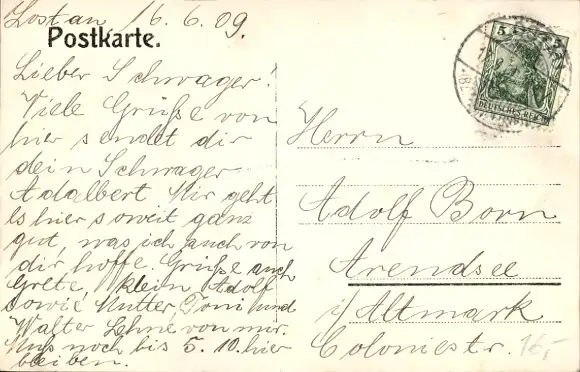 Lostau 16.6.09.
Postkarte.
Lieber Schwager!
Viele Grüße von
hier sendet dir
dein Schwager
Adalbert Mir geht
es hier soweit ganz
gut, was ich auch von
dir hoffe Grüße auch
Grete, klein Adolf
sowie Mutter, Toni und
Walter Lehne von mir.
Muß noch bis 5.10. hier
bleiben.
5
DEUTSCHES REICH
Herrn
Adolf Born
Arendsee
i/Altmark
Coloniestr.
16,-